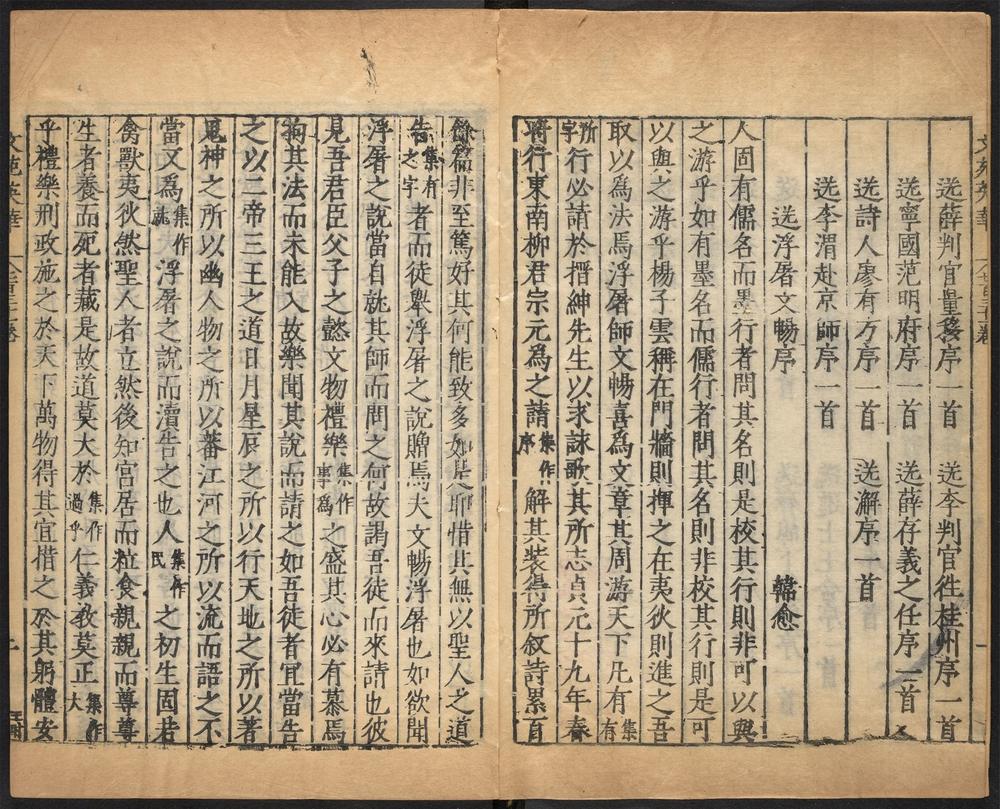 送薛判官量移序一首 送李判官徃桂州序一首
送寧國范明府序一首 送薛存義之任序一首
送詩人廖有方序一首 送澥序一首
送李渭赴京師序一首
送浮屠文暢序 韓愈
人固有儒名而墨行者問其名則是校其行則非可以與
之游乎如有墨名而儒行者問其名則非校其行則是可
以與之游乎楊子雲稱在門牆則揮之在夷狄則進之吾
取以爲法焉浮屠師文暢喜爲文章其周游天下凡有集有
所字行必請於搢紳先生以求詠歌其所志貞元十九年春
將行東南柳君宗元為之請集作序解其裝得所叙詩累百
餘篇非至篤好其何能致多如是耶惜其無以聖人之道
告集有之字者而徒舉浮屠之說贈焉夫文暢浮屠也如欲聞
浮屠之說當自就其師而問之何故謁吾徒而來請也彼
見吾君臣父子之懿文物禮樂集作事爲之盛其心必有慕焉
拘其法而未能入故樂聞其說而請之如吾徒者宜當告
之以二帝三王之道日月星辰之所以行天地之所以著
鬼神之所以幽人物之所以蕃江河之所以流而語之不
當又爲集作浮屠之說而瀆告之也人集作民之初生固若
禽獸夷狄然聖人者立然後知宮居而粒食親親而尊尊
生者養而死者藏是故道莫大於集作過乎仁義敎莫正集作大
乎禮樂刑政施之於天下萬物得其宜惜之於其躬體安
文苑英華